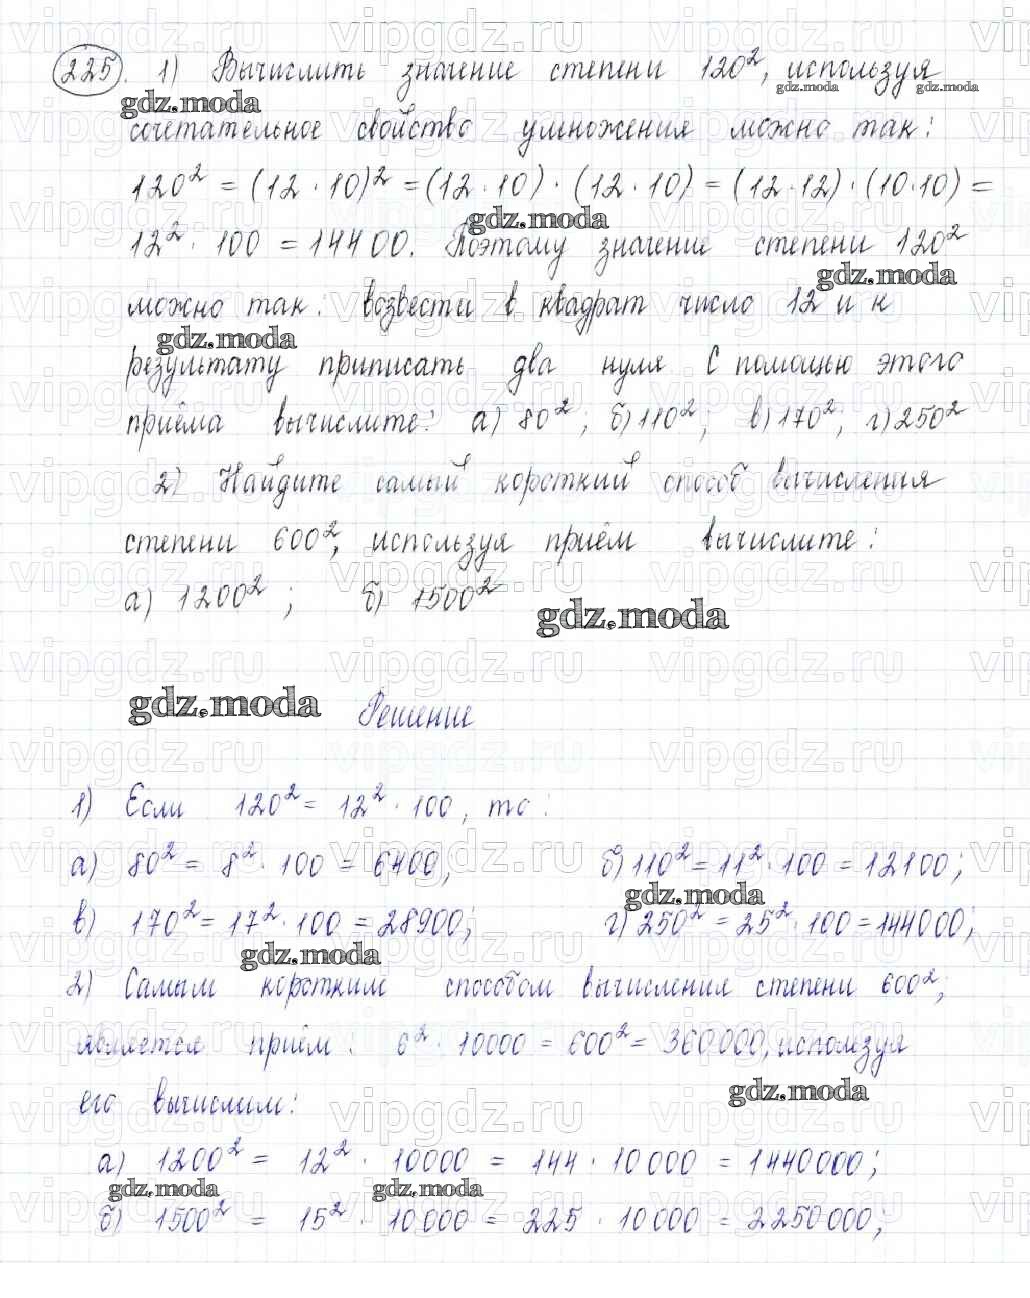 225. 1) Вычислить значение степени 120², используя
сочетательное свойство умножения можно так:
120² = (12 · 10)² = (12 · 10) · (12 · 10) = (12 · 12) · (10 · 10) =
12² · 100 = 14400. Поэтому значение степени 120²
можно так: возвести в квадрат число 12 и к
результату приписать два нуля С помощью этого
приёма вычислите: а) 80²; б) 110²; в) 170²; г) 250²
2) Найдите самый короткий способ вычисления
степени 600², используя приём вычислите:
а) 1200²; б) 1500²
Решение
1) Если 120² = 12² · 100, то:
а) 80² = 8² · 100 = 6400; б) 110² = 11² · 100 = 12100;
в) 170² = 17² · 100 = 28900; г) 250² = 25² · 100 = 144000;
2) Самым коротким способом вычисления степени 600²,
является приём: 6² · 10000 = 600² = 360000, используя
его вычислим:
а) 1200² = 12² · 10000 = 144 · 10000 = 1440000;
б) 1500² = 15² · 10000 = 225 · 10000 = 2250000;
vipgdz.ru
gdz.moda